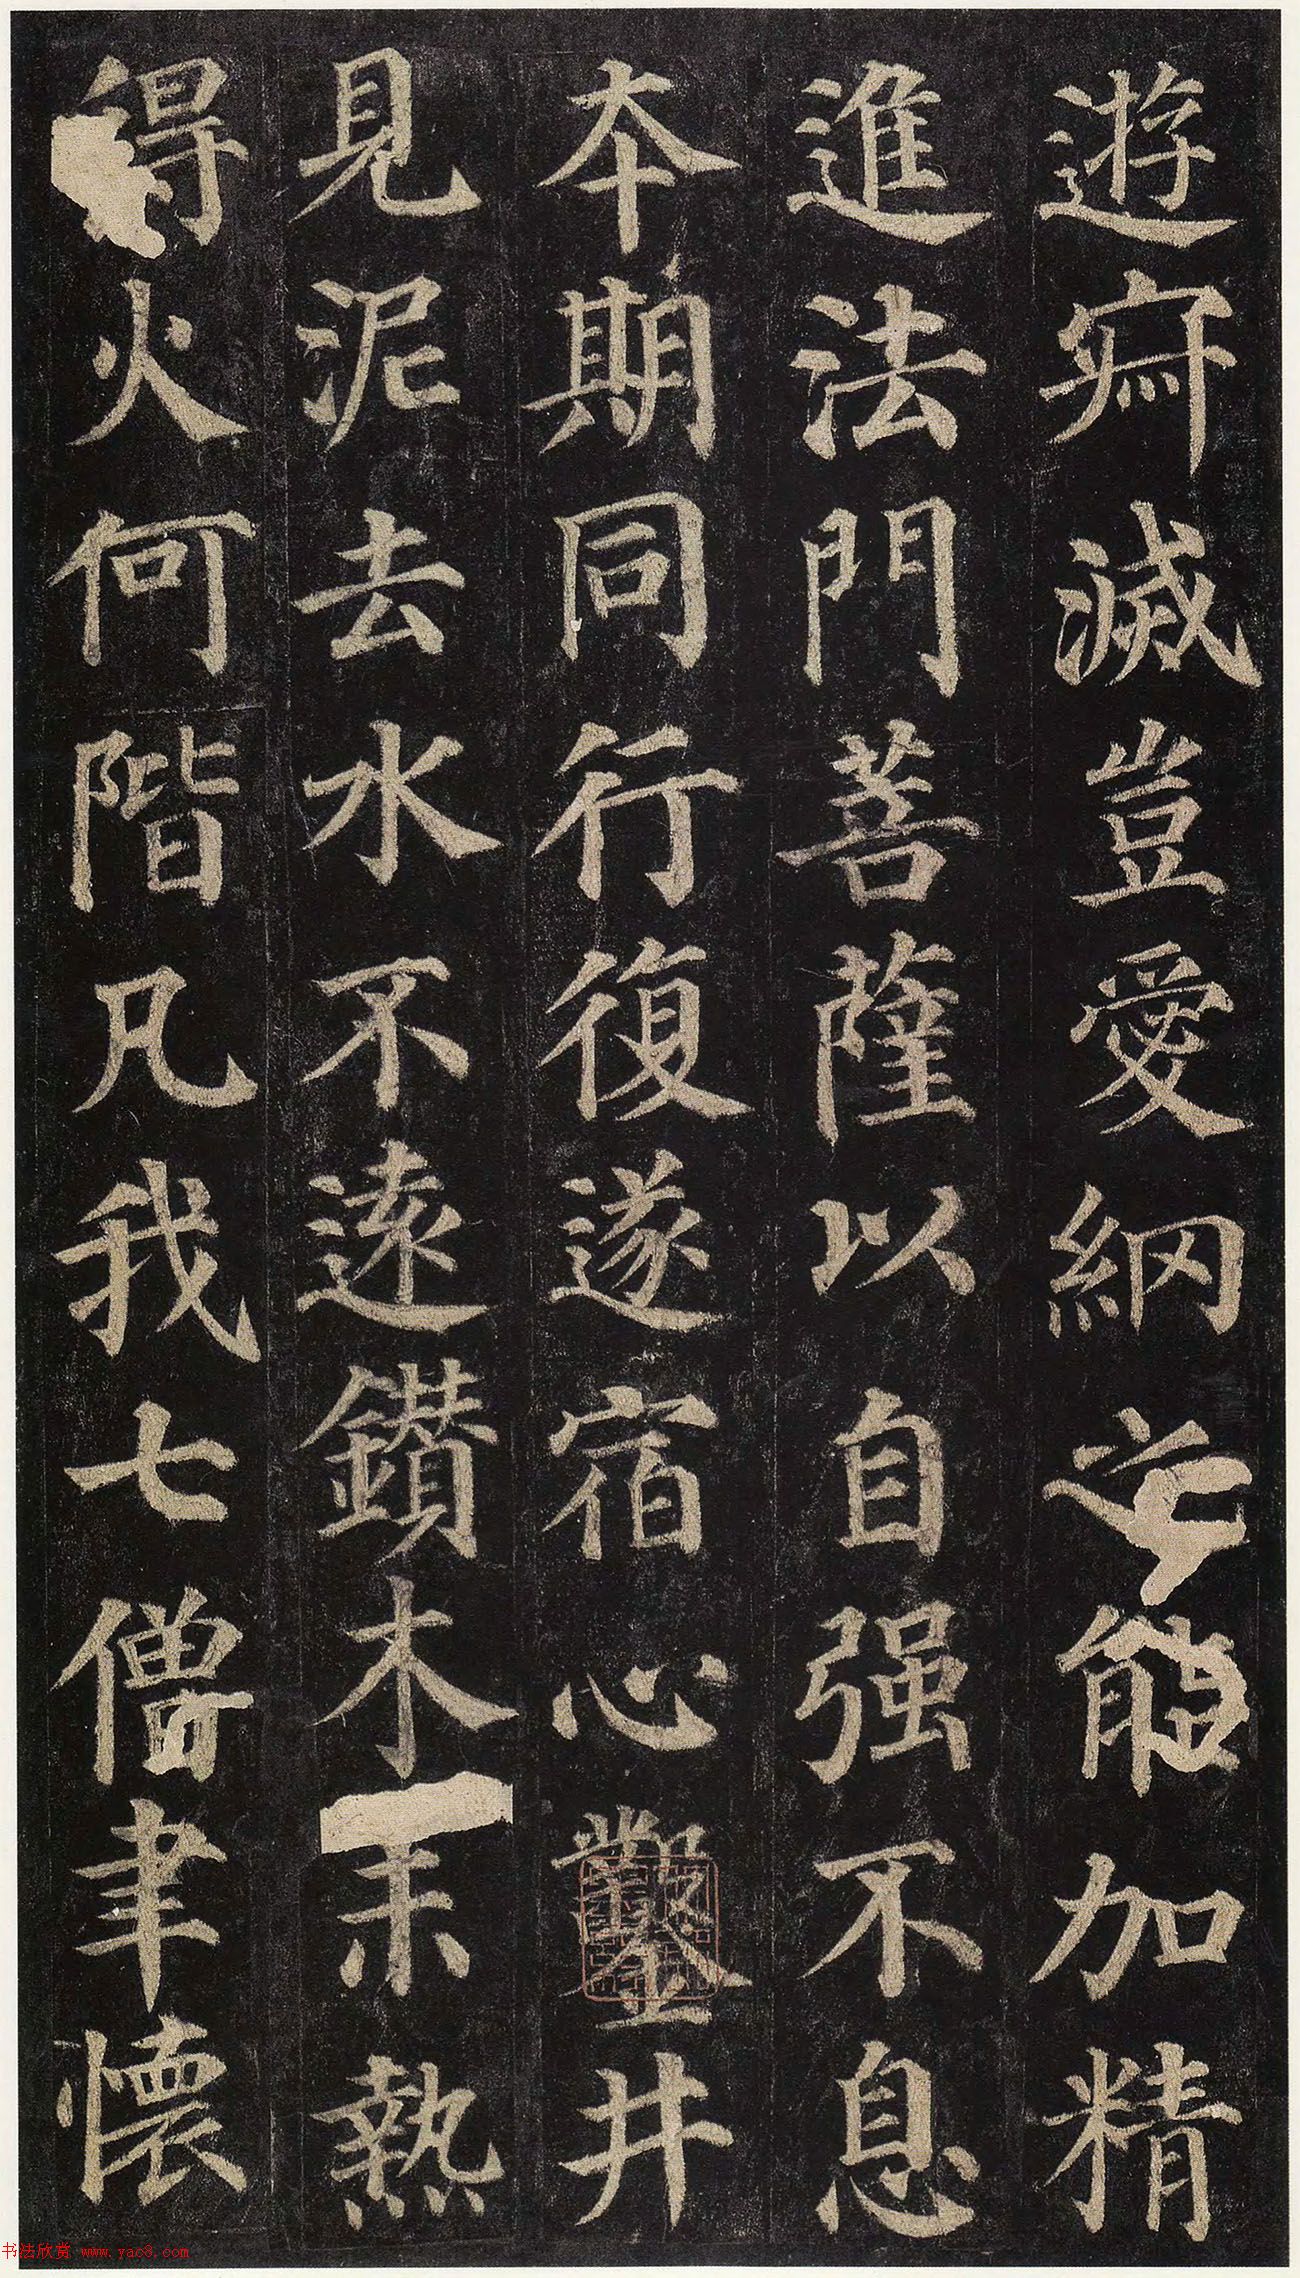 遊寂滅豈愛網之能加精
進法門菩薩以自强不息
本期同行復遂宿心鑿井
見泥去水不遠鑽木未熱
得火何階凡我七僧聿懷
书法欣赏 www.yac8.com